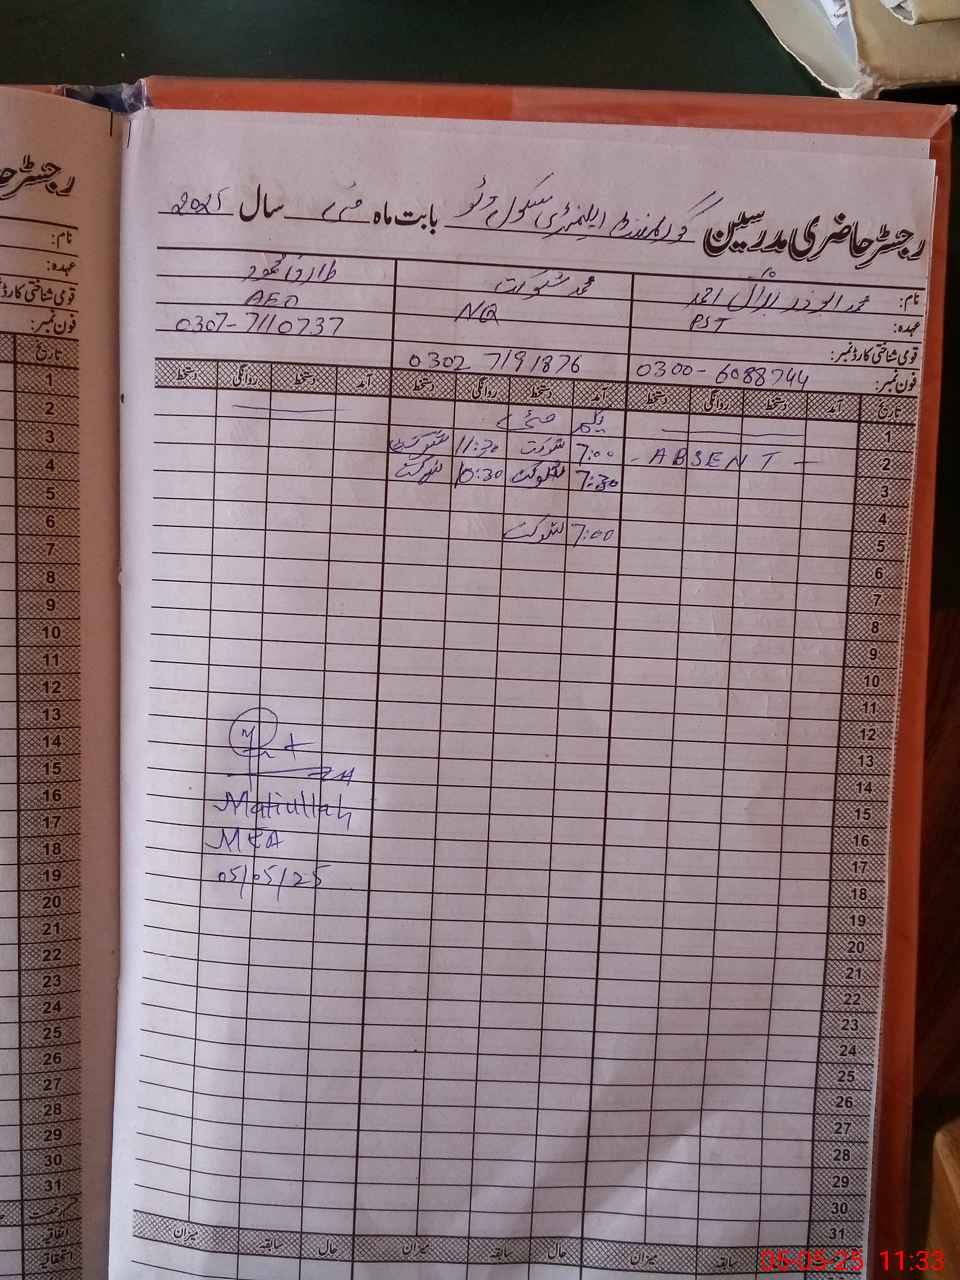 رجسٹر حاضری مدرسین گورنمنٹ ایلیمنٹری سکول بابت ماہ مئی سال 2025
نام: محمد ابوذر بلال احمد محمد شوکت طارق محمود
عہدہ: PST NQ AEO
قومی شناختی کارڈ نمبر:
فون نمبر: 0300-6088744 0302 7191876 0307-7110737
تاریخ آمد دستخط روانگی دستخط آمد دستخط روانگی دستخط آمد دستخط روانگی دستخط
1 یکم مئی
2 - ABSENT - 7:00 شوکت 11:30 شوکت
3 7:30 شوکت 10:30 شوکت
4
5 7:00 شوکت
6
7
8
9
10
11
12
13
14
15
16
17
18
19
20
21
22
23
24
25
26
27
28
29
30
31
حال سابقہ میزان حال سابقہ میزان حال سابقہ میزان
Matiullah
MEA
05/05/25
رجسٹر
نام:
عہدہ:
قومی شناختی کارڈ
فون نمبر:
تاریخ
1
2
3
4
5
6
7
8
9
10
11
12
13
14
15
16
17
18
19
20
21
22
23
24
25
26
27
28
29
30
31
اتفاقیہ
استحقاقیہ
05-05-25 11:33